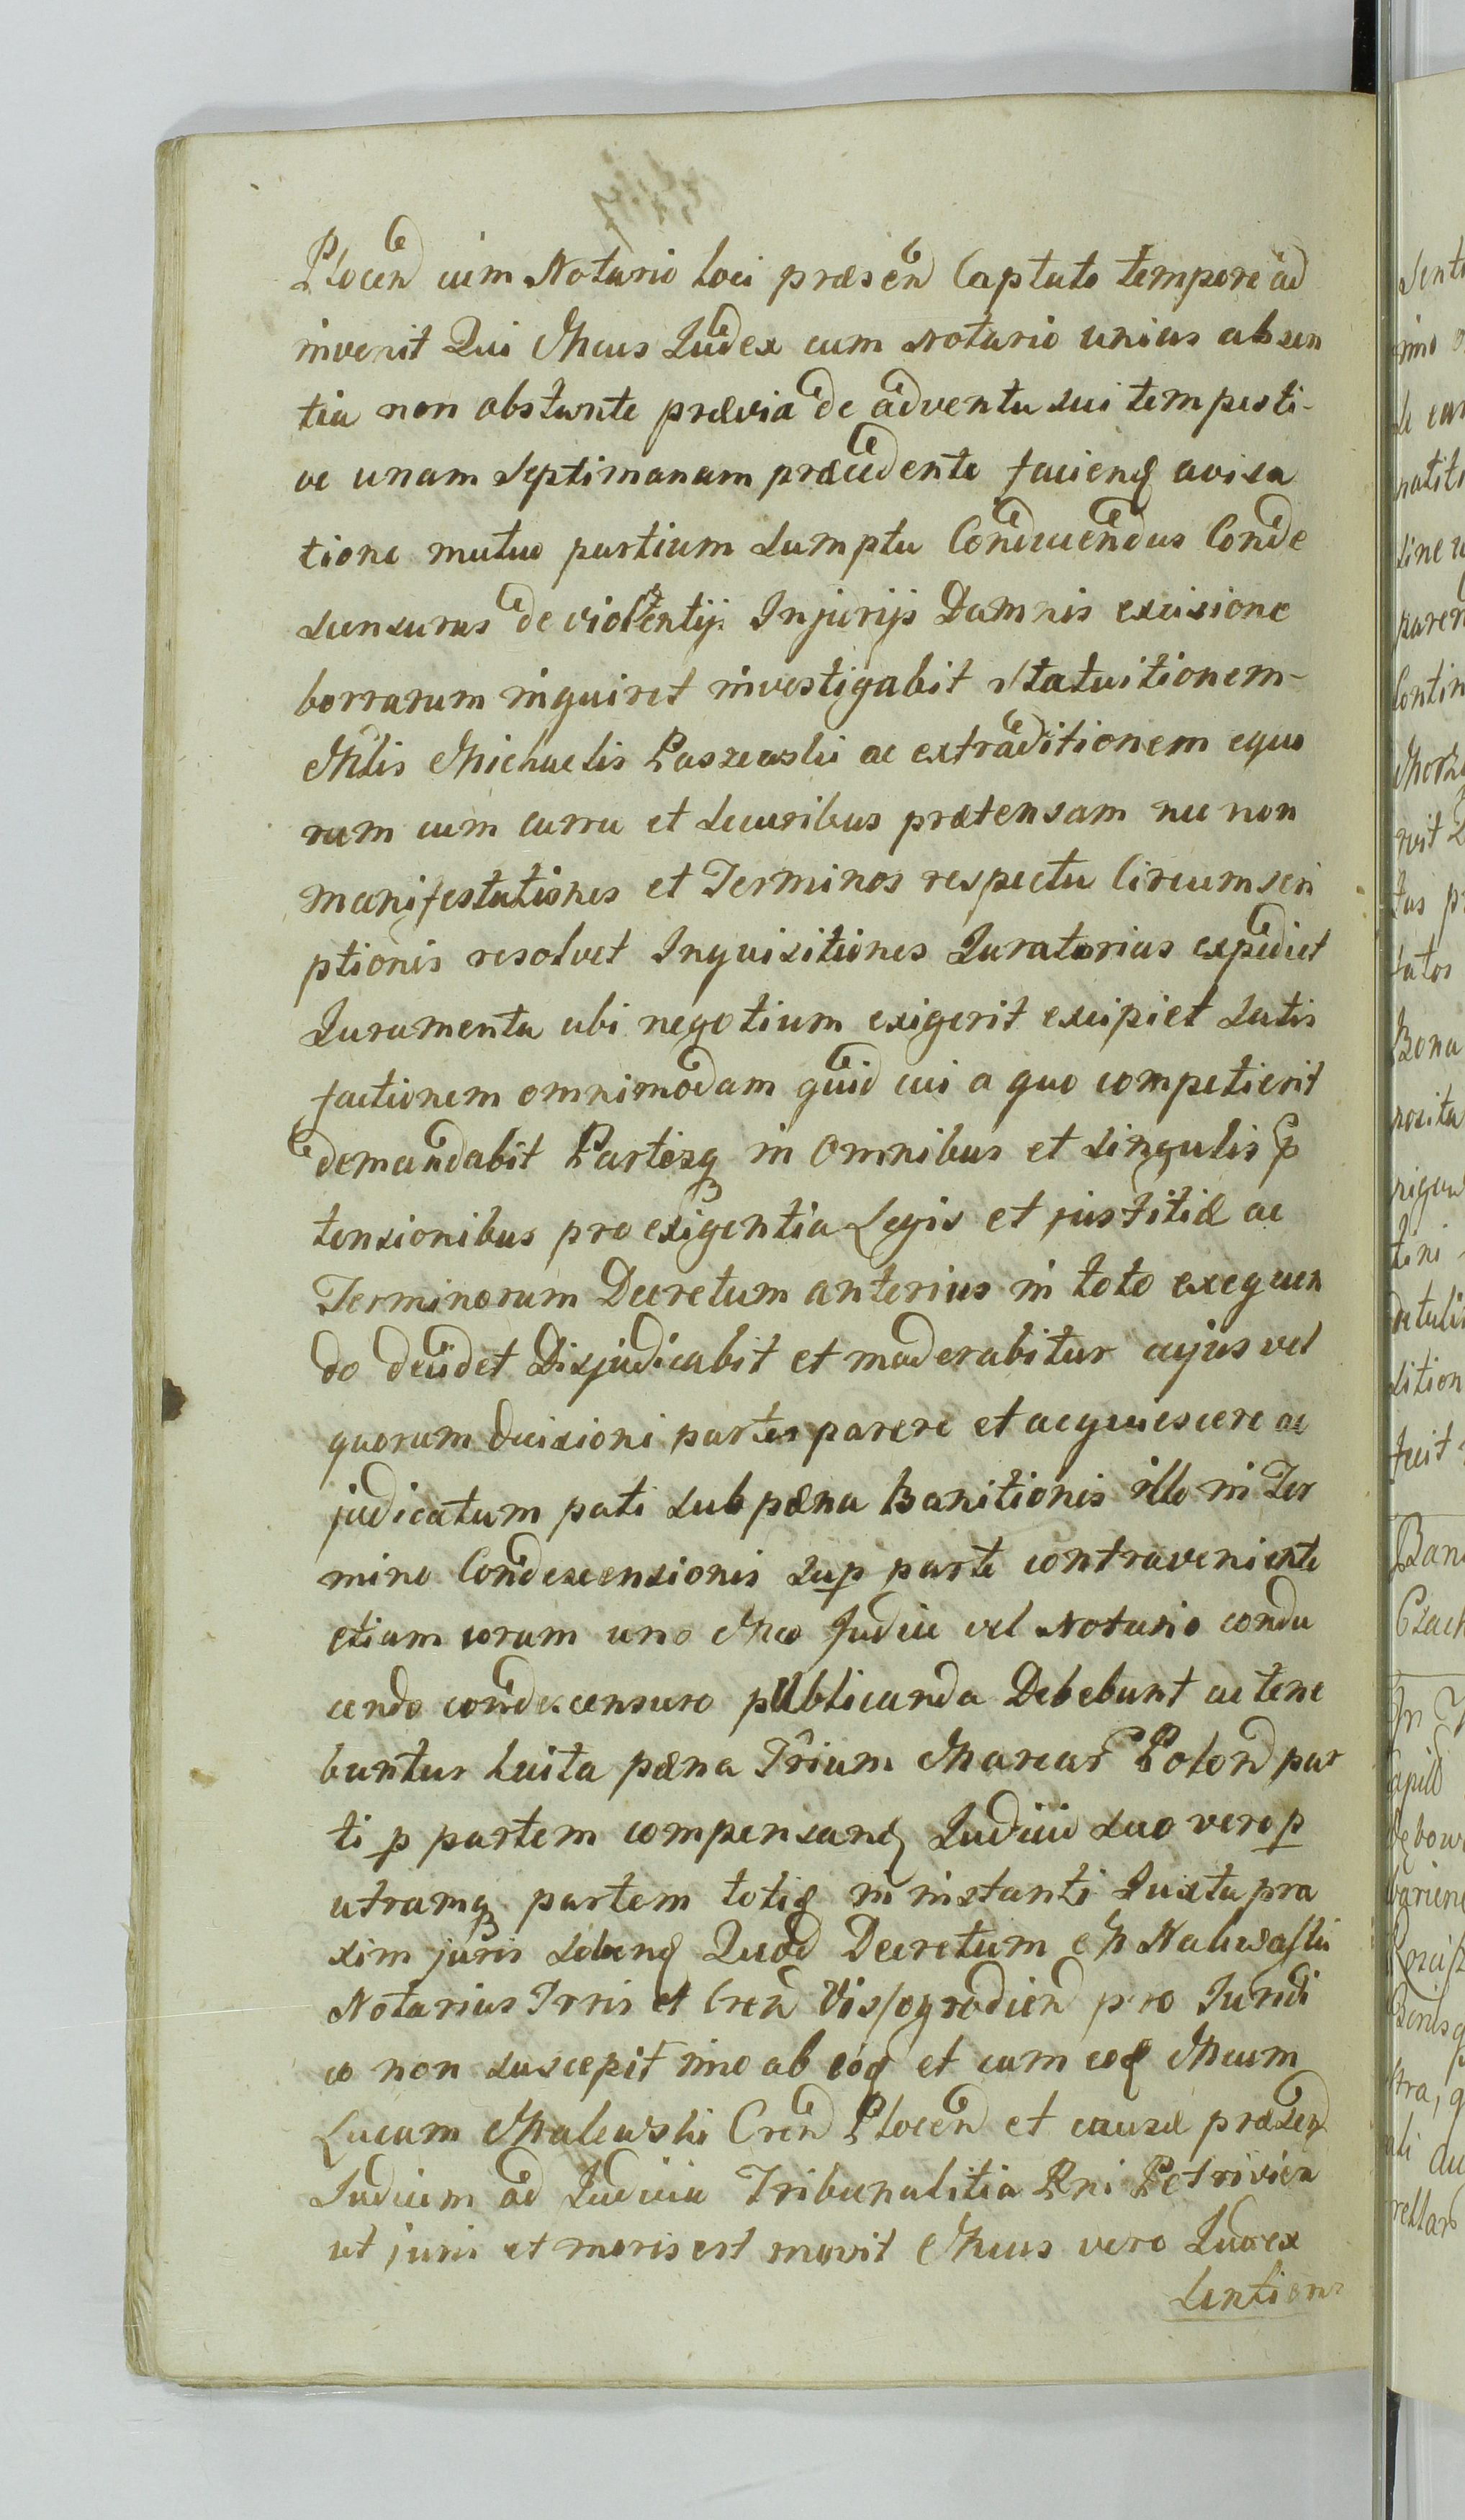 Plocen cum Notario loci præsen Captato tempore ad
invenit Qui Mcus Judex cum Notario unius absen
tia non obstante prævia de adventu sui tempesti-
ve unam Septimanam præcedente faciend avisa
tione mutuo partium Sumptu Conducendus Conde
scensurus de violentijs Injurijs Damnis excisione
borrarum inquiret investigabit Statuitionem-
Mlis Michaelis Paszewski ac extraditionem equo
rum cum curru et Securibus prætensam nec non
manifestationes et Terminos respectu Circumscri
ptionis resolvet Inquisitiones Juratorias expediet
Juramenta ubi negotium exigerit excipiet Satis
factionem omnimodam quid cui a quo competierit
demandabit Partesq in Omnibus et Singulis p
tensionibus pro exigentia Legis et justitiæ ac
Terminorum Decretum anterius in toto exequen
do decidet Disjudicabit et moderabitur cujus vel
quorum decisioni partes parere et acquiescere ac
judicatum pati Sub pæna Banitionis illo in Ter
mino Condescensionis Sup parte contraveniente
etiam coram uno Mco Judice vel Notario condu
cendo condescensuro publicanda Debebunt ac tene
buntur Luita pæna Trium Marcar Polon par
ti p partem compensand Judicio Suo vero p
utramq partem toties in instanti Juxta pra
xim juris Solvend Quod Decretum M Nakwaski
Notarius Trris et Cren Vissogrodien pro Juridi
co non Suscepit imo ab eod et cum eod Mcum
Lucam Malewski Cren Plocen et causæ præsen
Judicem ad Judicia Tribunalitia Rni Petricien
ut juris et moris est movit Mcus vero Judex